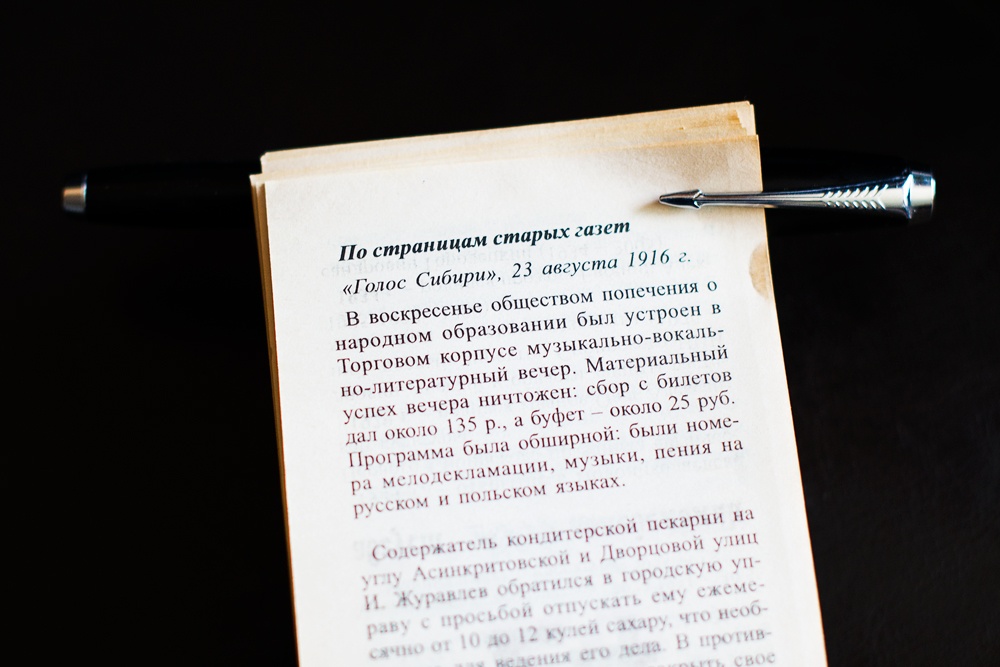 По страницам старых газет
«Голос Сибири», 23 августа 1916 г.
В воскресенье обществом попечения о
народном образовании был устроен в
Торговом корпусе музыкально-вокаль-
но-литературный вечер. Материальный
успех вечера ничтожен: сбор с билетов
дал около 135 р., а буфет – около 25 руб.
Программа была обширной: были номе-
ра мелодекламации, музыки, пения на
русском и польском языках.
Содержатель кондитерской пекарни на
углу Асинкритовской и Дворцовой улиц
И. Журавлев обратился в городскую уп-
раву с просьбой отпускать ему ежеме-
сячно от 10 до 12 кулей сахару, что необ-
для ведения его дела. В против-
свое